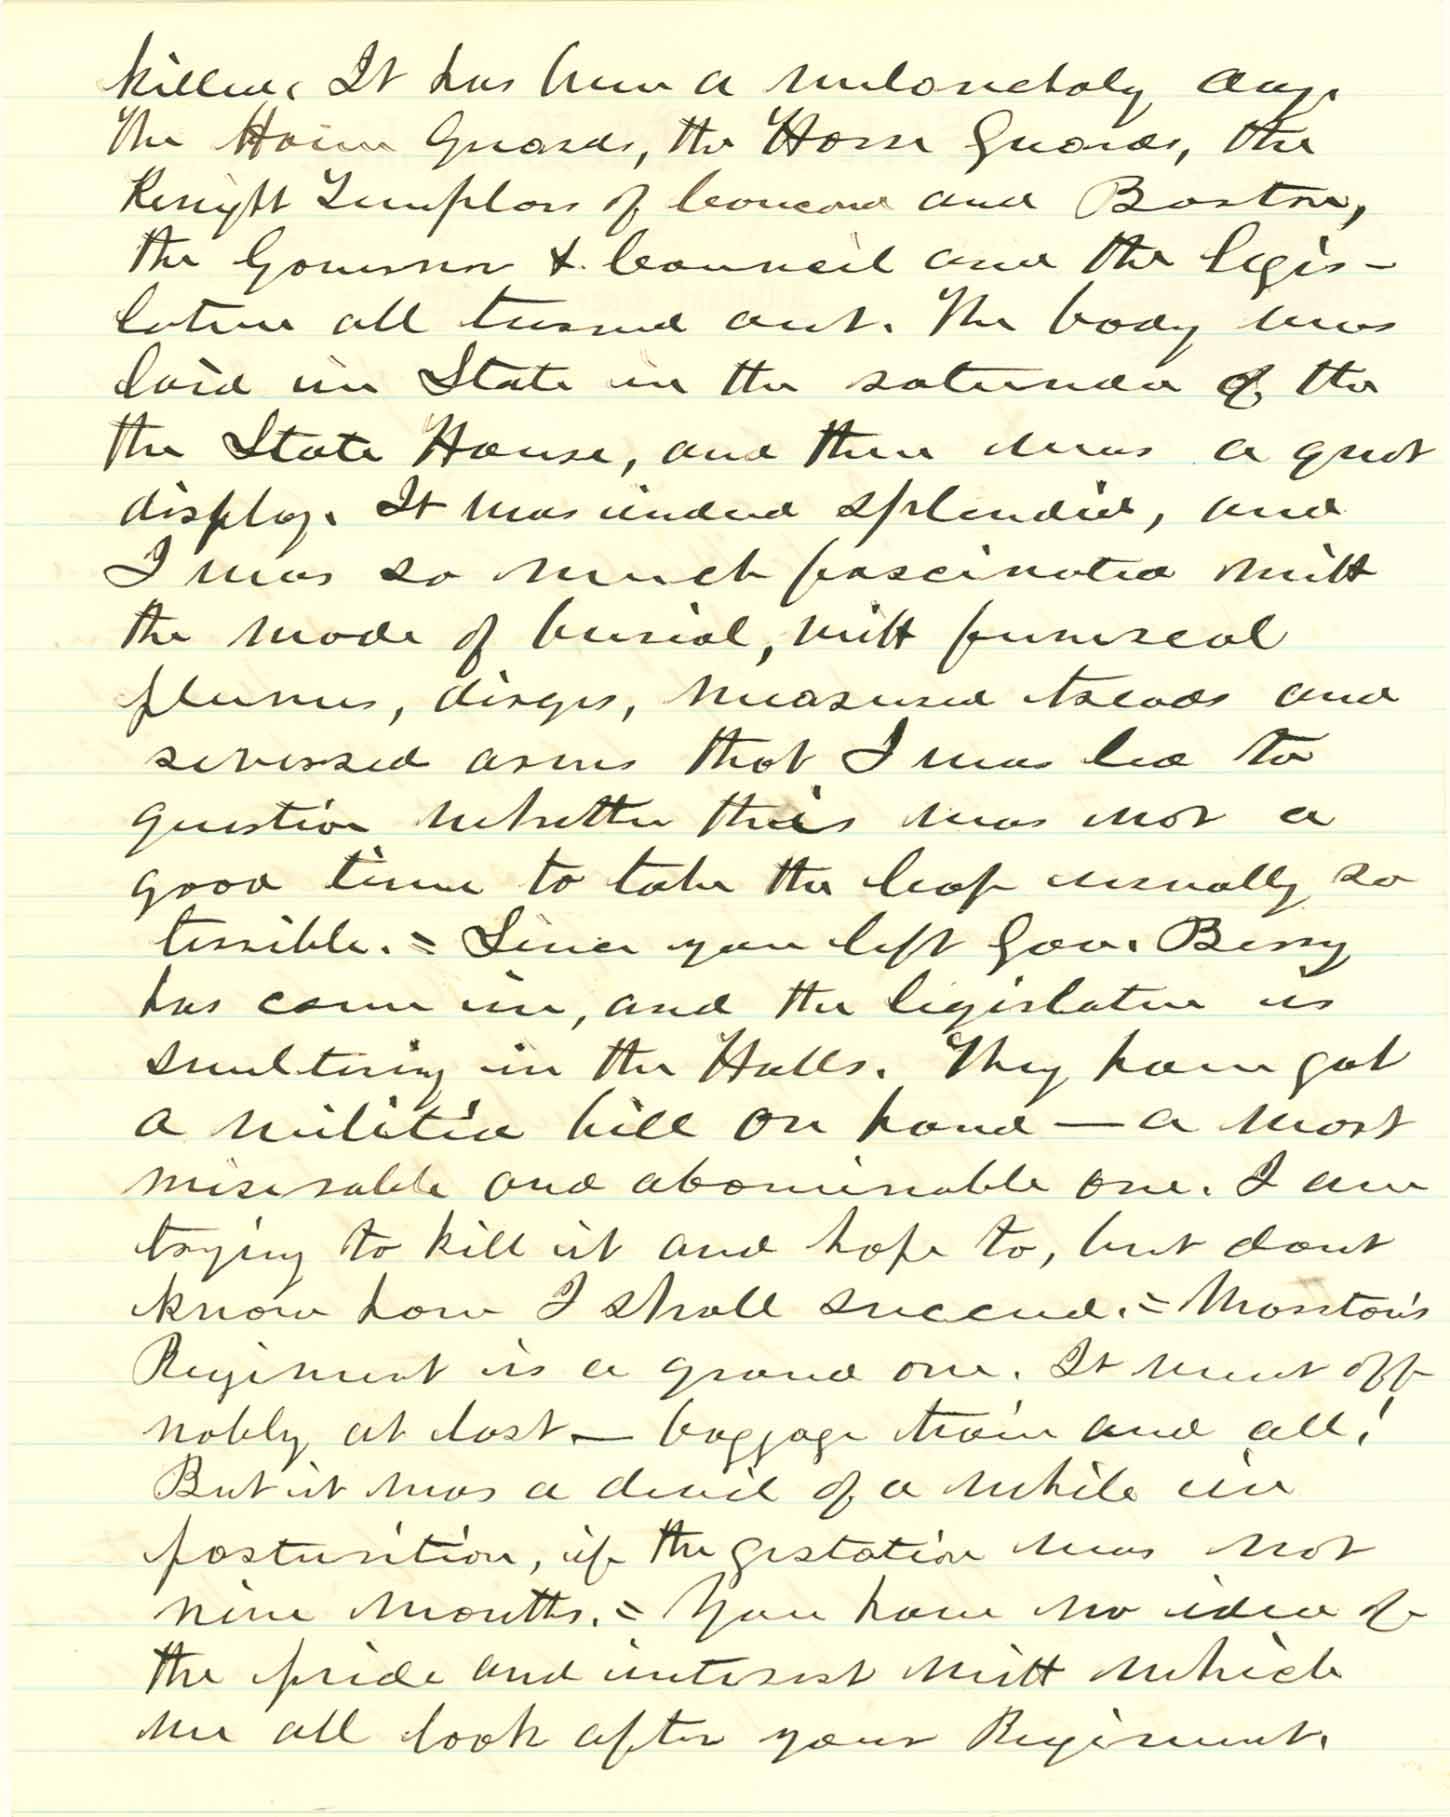 killed. It has been a melancholy day.
The Horse Guards, the Horse Guards, the
Knight Templars of Concord and Boston,
the Governor & Council and the legis-
lature all turned out. The body was
laid in State in the rotunda of the
the State House, and there was a great
display. It was indeed splendid, and
I was so much fascinated with
the mode of burial, with funereal
plumes, dirges, measured treads and
reversed arms that I was led to
question whether this was not a
good time to take the leap usually so
terrible. = Since you left Gov. Berry
has come in, and the legislature is
sweltering in the Halls. They have got
a militia bill on hand — a most
miserable and abominable one. I am
trying to kill it and hope to, but dont
know how I shall succeed. = Marston's
Regiment is a grand one. It went off
nobly at last — baggage train and all!
But it was a devil of a while in
parturition, if the gestation was not
nine months. = You have no idea of
the pride and interest with which
we all look after your Regiment.